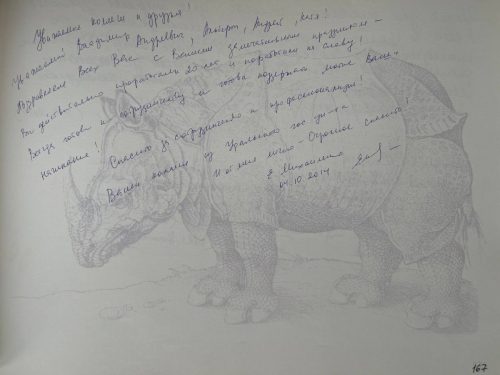 Уважаемые коллеги и друзья!
Уважаемый Владимир Андреевич, Валерий, Андрей, Катя!
Поздравляем Всех Вас с Вашим замечательным праздником –
Вы действительно проработали 25 лет и поработали на славу!
Всегда готовы к сотрудничеству и готовы поддержать многие Ваши
начинания!
Спасибо за сотрудничество и профессионализм!
Ваши коллеги из Уральского гос. ун-та
И от меня лично – Огромное спасибо!
Е. Михайлова
04.10.2014
167